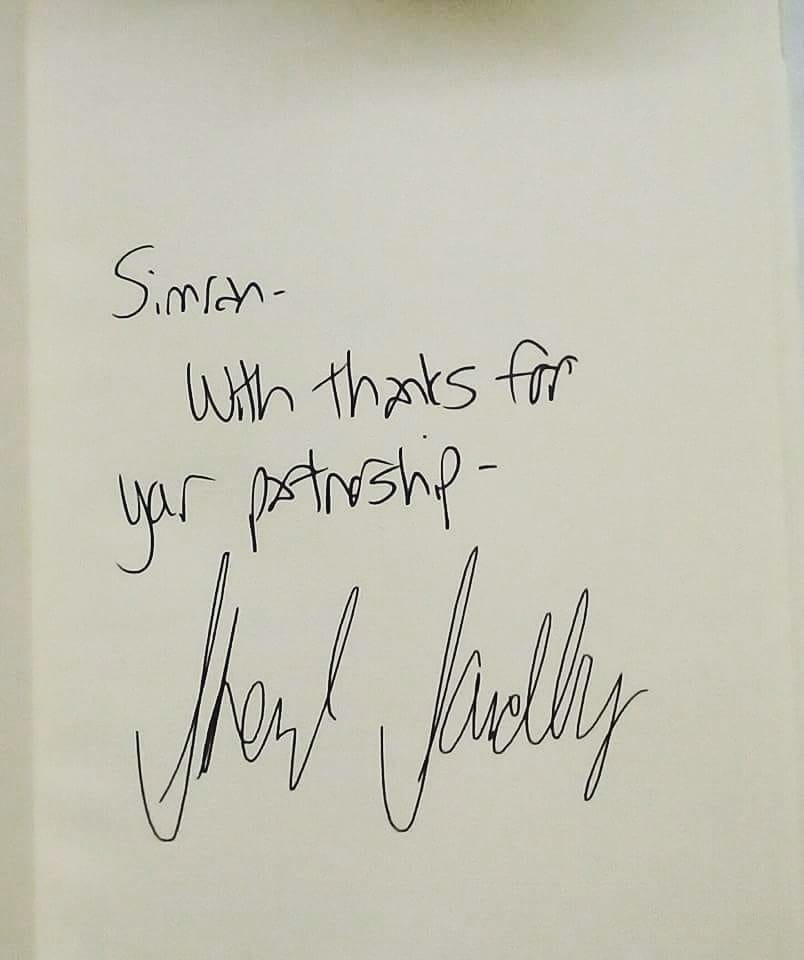 Simran-
With thanks for
your partnership-
Sheryl Sandberg